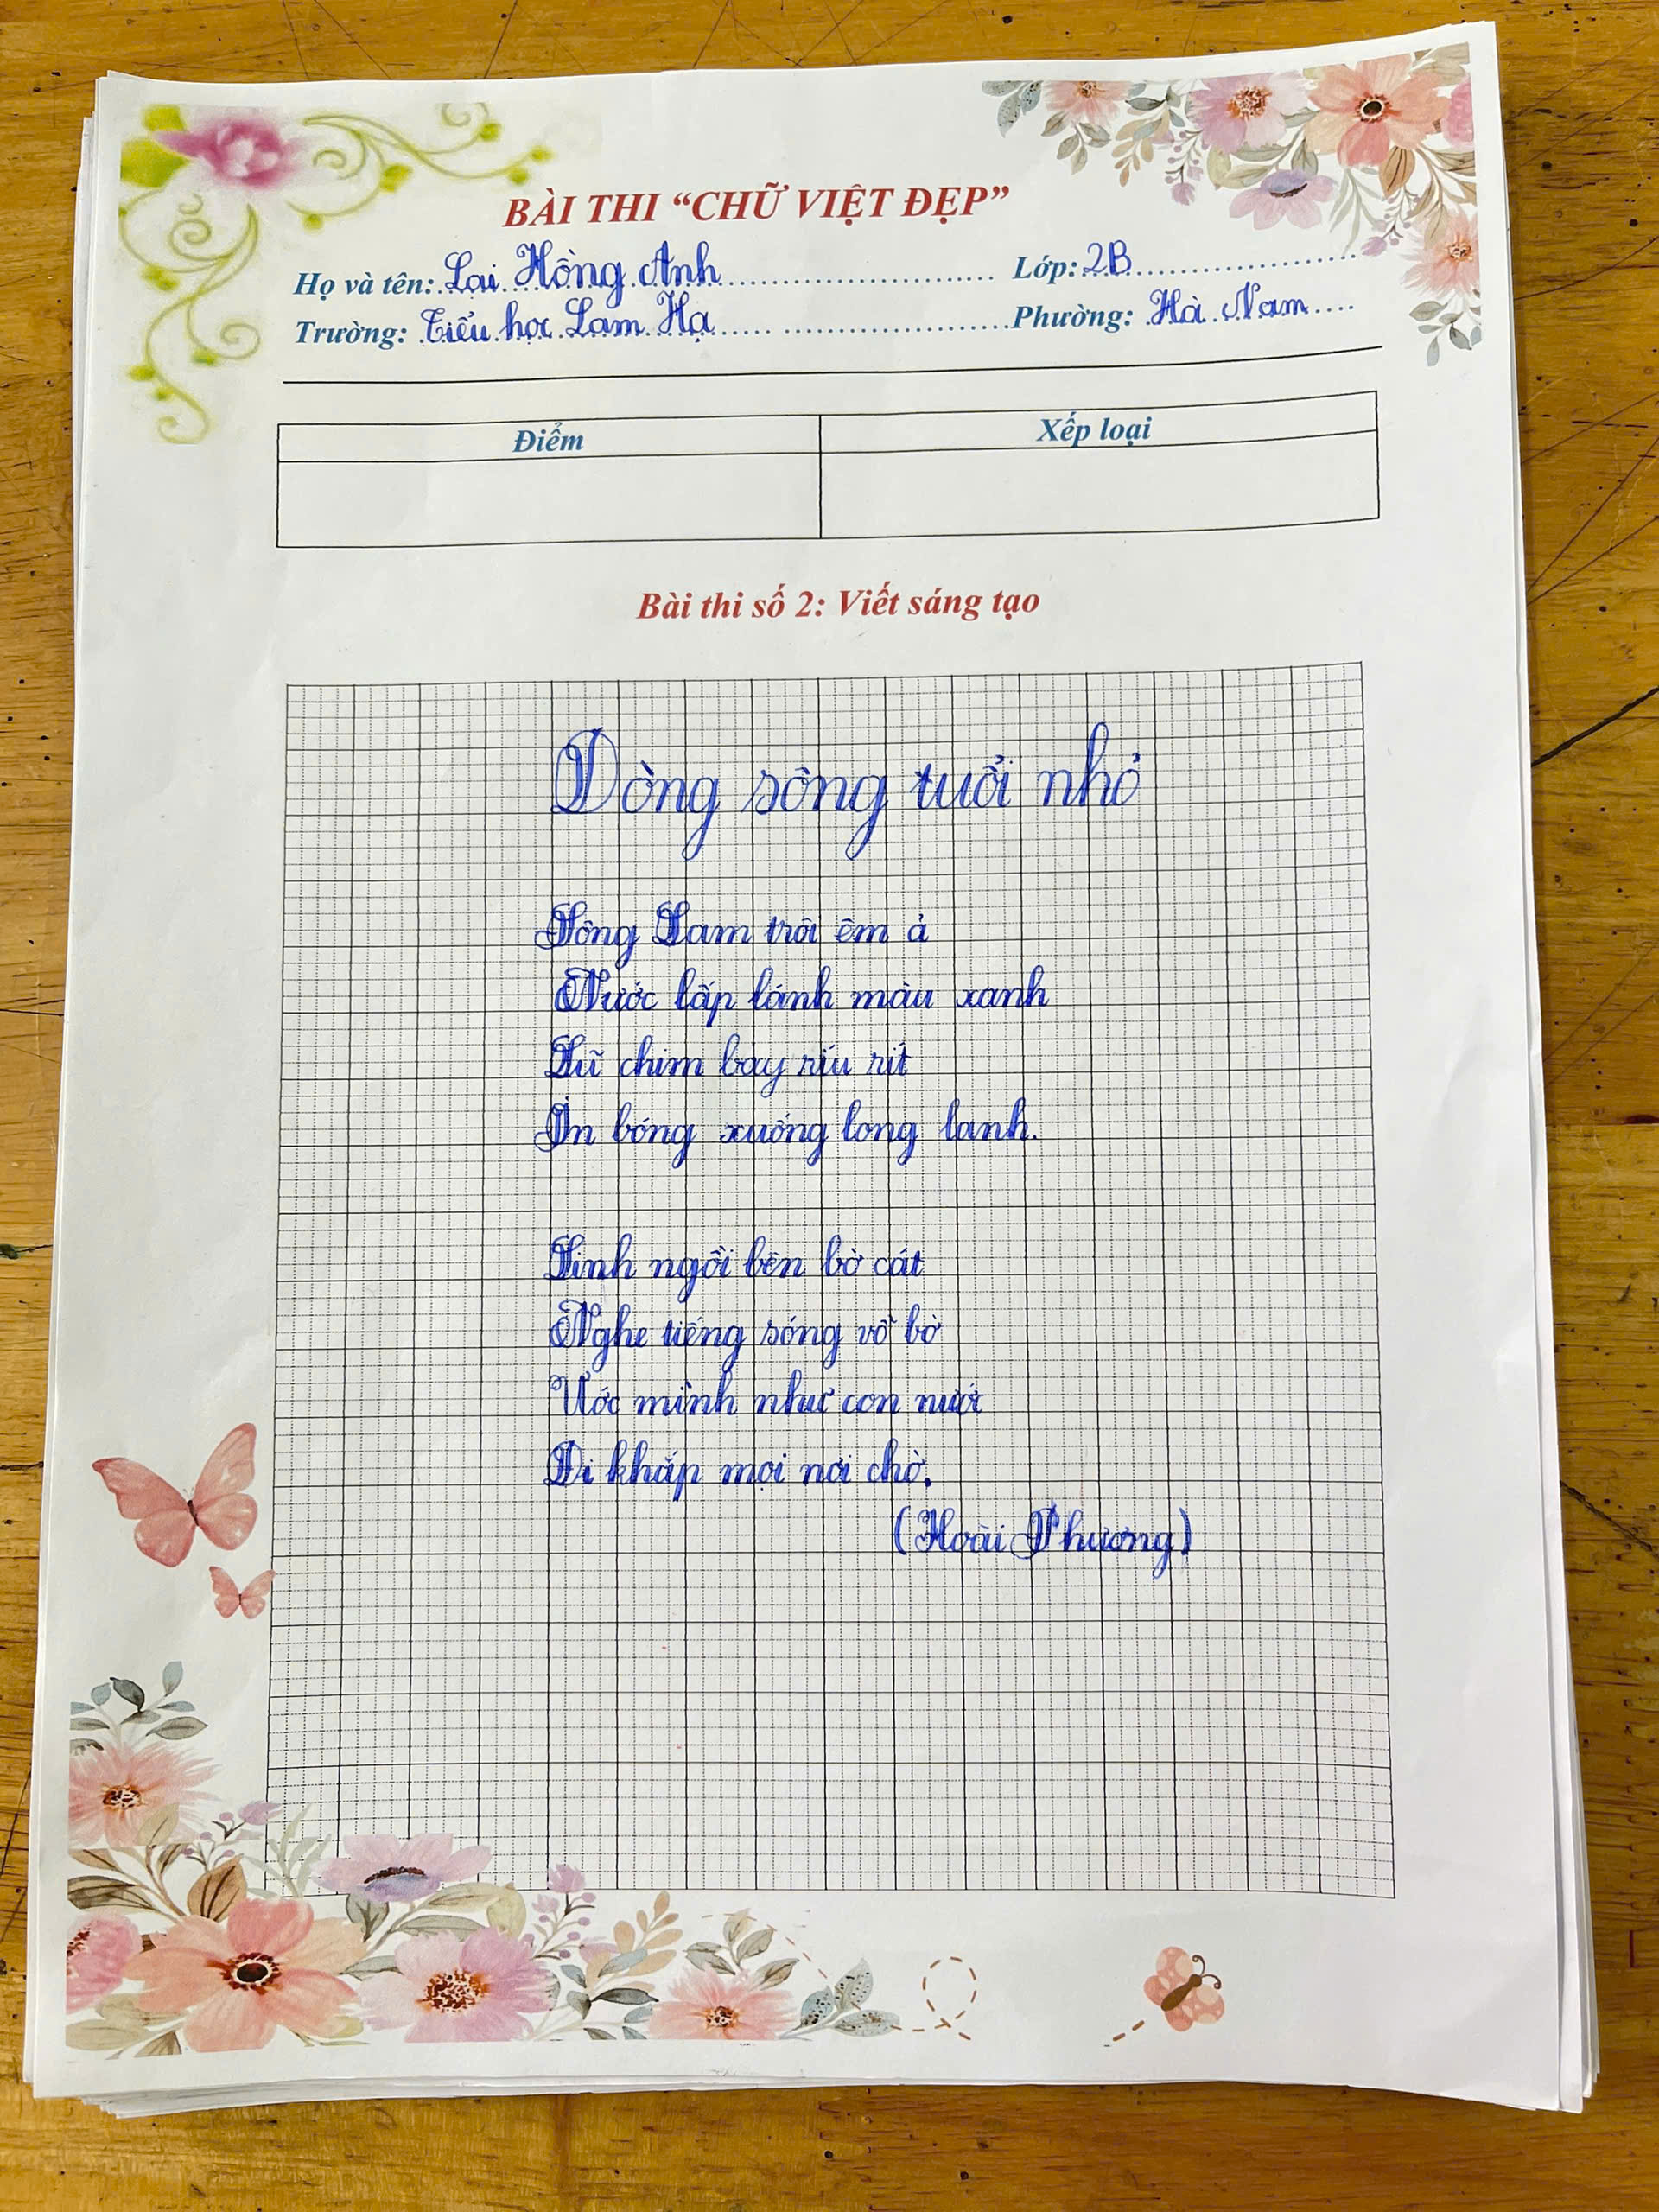 BÀI THI “CHỮ VIỆT ĐẸP”
Họ và tên: Lại Hồng Anh Lớp: 2B
Trường: Tiểu học Lam Hạ Phường: Hà Nam
Điểm Xếp loại
Bài thi số 2: Viết sáng tạo
Dòng sông tuổi nhỏ
Sông Lam trôi êm ả
Nước lấp lánh màu xanh
Lũ chim bay ríu rít
In bóng xuống long lanh.
Sinh ngồi bên bờ cát
Nghe tiếng sóng vỗ bờ
Ước mình như con nước
Đi khắp mọi nơi chờ.
(Hoài Phương)